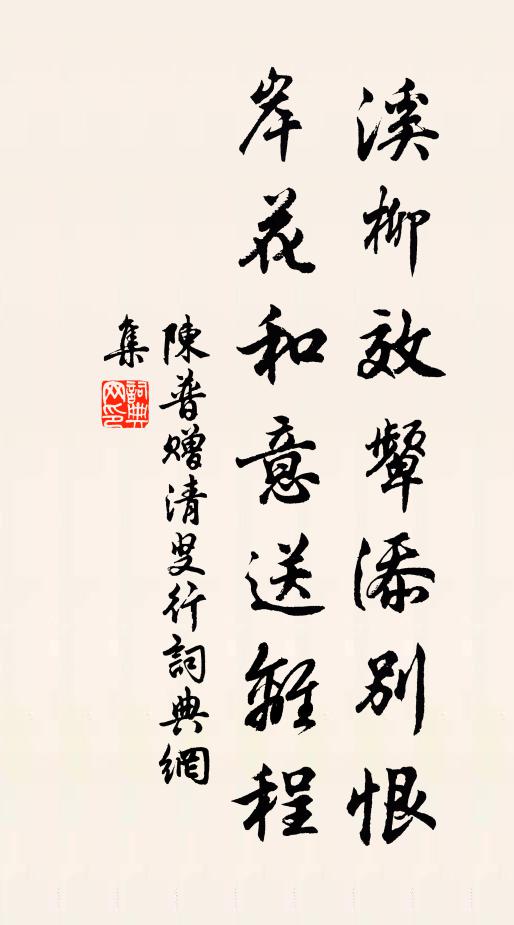 溪柳效顰添別恨
岸花和意送離程
陳普贈清叟行詞典網
集
詞典
网印